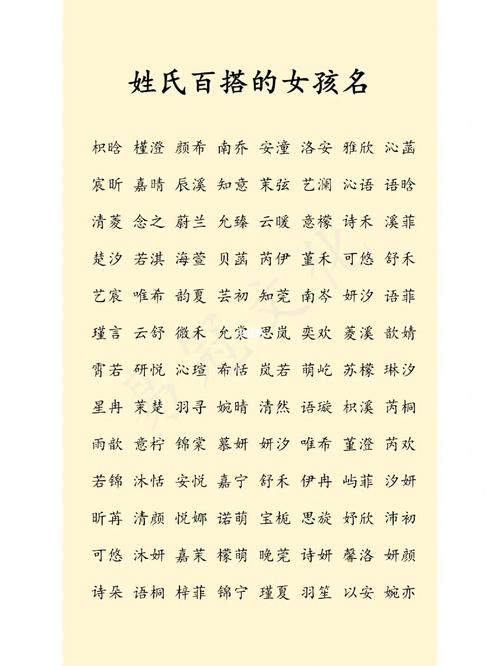 姓氏百搭的女孩名
枳晗 槿澄 颜希 南乔 安潼 洛安 雅欣 沁菡
宸昕 嘉晴 辰溪 知意 茉弦 艺澜 沁语 语晗
清菱 念之 蔚兰 允臻 云暖 意檬 诗禾 溪菲
楚汐 若淇 海萱 贝菡 芮伊 堇禾 可悠 舒禾
艺宸 唯希 韵夏 芸初 知莞 南岑 妍汐 语菲
瑾言 云舒 微禾 允棠 思岚 奕欢 菱溪 歆婧
霄若 研悦 沁瑄 希恬 岚若 萌屹 苏檬 琳汐
星冉 茉楚 羽寻 婉晴 清然 语璇 枳溪 芮桐
雨歆 意柠 锦棠 慕妍 妍汐 唯希 堇澄 芮欢
若锦 沐恬 安悦 嘉宁 舒禾 伊冉 屿菲 汐妍
昕苒 清颜 悦娜 诺萌 宝栀 思旋 妤欣 沛初
可悠 沐妍 嘉茉 檬萌 晚莞 诗妍 馨洛 妍颜
诗朵 语桐 梓菲 锦宁 瑾夏 羽笙 以安 婉亦